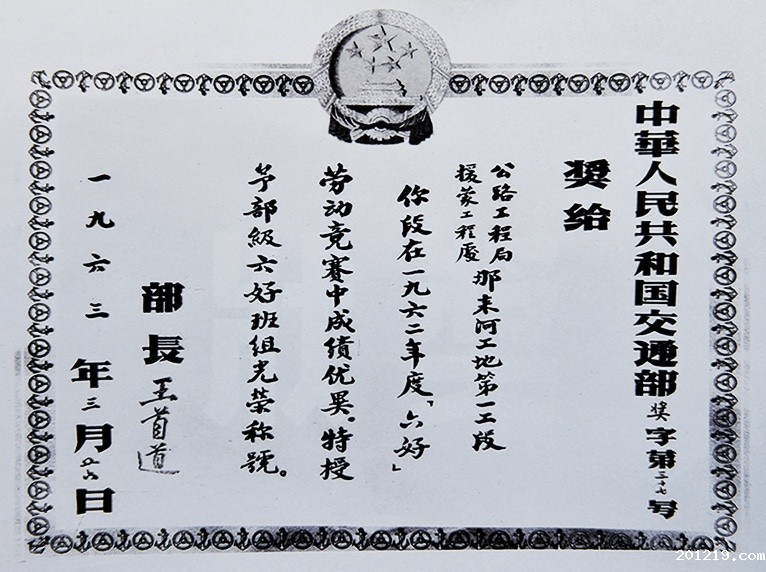 中華人民共和国交通部奖字第三十七号
奨给
公路工程局
援蒙工程处
那末河工地第一工段
你段在一九六二年度「六好」
劳动竞赛中成绩优異。特授
予部級六好班组光荣称號。
部長 王首道
一九六三年三月廿六日
201219.com